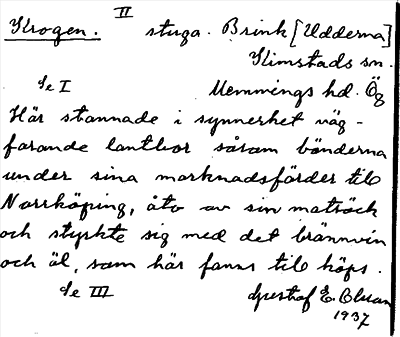 II
Krogen. stuga. Brink [Udderna]
Kimstads sn.
Se I Memmings hd. Ög
Här stannade i synnerhet väg-
farande lantbor såsom bönderna
under sina marknadsfärder till
Norrköping, åto av sin matsäck
och styrkte sig med det brännvin
och äl, som här fanns till köps.
Se III Gustaf E.
1937